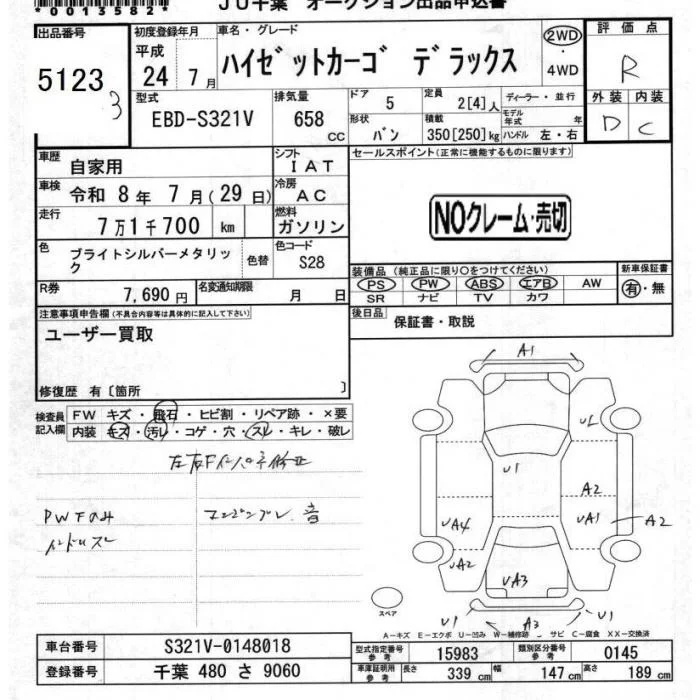 *0013582* JU千葉 オークション出品申込書
出品番号 初度登録年月 車名・グレード 評価点
5123 3 平成 24年 7月 ハイゼットカーゴ デラックス 2WD・4WD R
型式 排気量 ドア 定員 ディーラー・並行 外装 内装
EBD-S321V 658 CC 5 2[4]人 モデル年式 年 D C
形状 積載 ハンドル 左・右
バン 350[250]kg
車歴 自家用 シフト IAT セールスポイント(正常に機能するものに限ります)
車検 令和 8年 7月(29日) 冷房 AC
NOクレーム・売切
走行 7万1千700 km 燃料 ガソリン
色 ブライトシルバーメタリック 色替 色コード S28
装備品(純正品に限り○をつけてください) 新車保証書
PS PW ABS エアB AW 有・無
SR ナビ TV カワ
R券 7,690円 名変通知期限 月 日
後日品 保証書・取説
注意事項申告欄(不具合内容等は具体的に記入して下さい)
ユーザー買取
修復歴 有〔箇所 〕
検査員記入欄 FW キズ・飛石・ヒビ割・リペア跡・×要
内装 キズ・汚レ・コゲ・穴・スレ・キレ・破レ
PWFのみ
エンジンブレ、音
A1
UL
U1
A2
UA4 UA1 A2
UA2
UA3
スペア
U1 A3 U1
A-キズ E-エクボ U-凹み W-補修跡 サビ C-腐食 XX-交換済
車台番号 S321V-0148018 型式指定番号 参考 15983 類別区分番号 参考 0145
登録番号 千葉 480 さ 9060 車庫証明用 参考 長さ 339 cm 幅 147 cm 高さ 189 cm